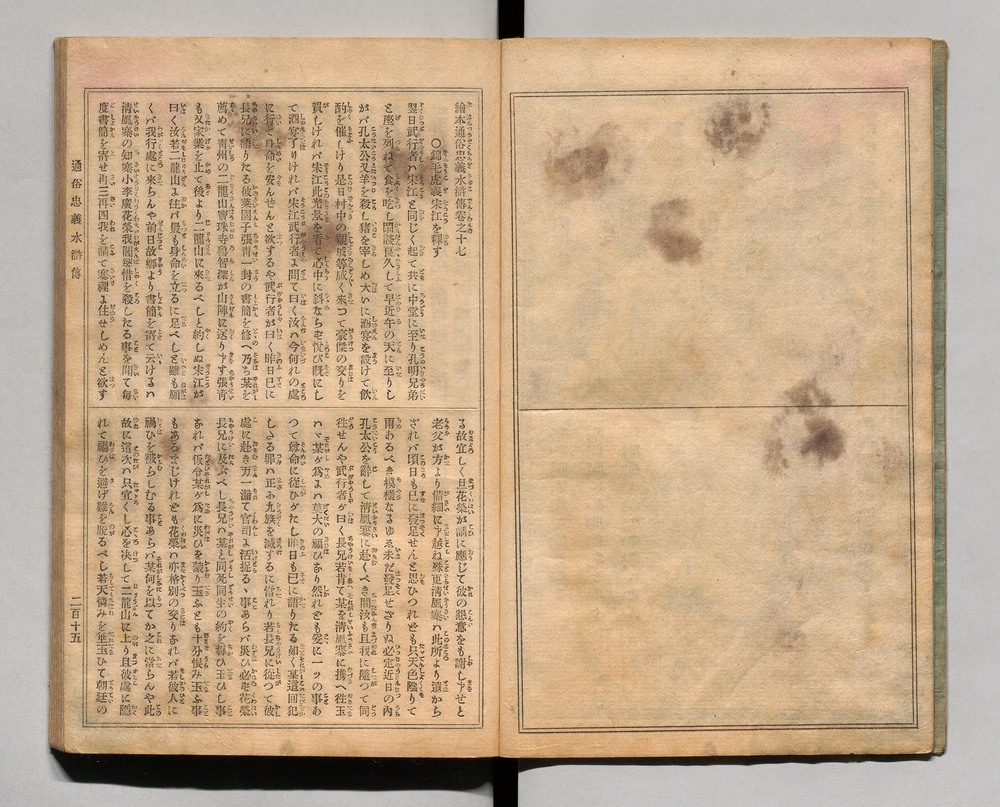 繪本通俗忠義水滸傳卷之十七
○錦毛虎義宋江を釋す
翌日武行者ハ宋江と同じく起て共に中堂に至り孔明兄弟
と座を列ねて食を吃し閑談良久して早近午の天に至りし
がバ孔太公又羊を殺し猪を宰しめ大いに酒宴を設けて飮
酌を催しけり是日村中の親戚等咸く來つて豪傑の交りを
賀しけれバ宋江此光景を看て心中に斜ならず悅び既にし
て酒宴了りけれバ宋江武行者に問て曰く汝ハ今何れの處
に行て身命を安んせんと欲するや武行者が曰く昨日已に
長兄に語りたる彼菜園子張靑一封の書簡を修へ乃ち某を
薦めて靑州の二龍山寶珠寺魯智深が山陣に送り申す張靑
も又家業を止て後より二龍山に來るべしと約しぬ宋江が
曰く汝若二龍山に往バ最も身命を立るに足べしと雖も願
くバ我行處に來らんや前日故鄕より書簡を寄て云けるハ
淸風寨の知寨小李廣花榮我閻婆惜を殺したる事を聞て每
度書簡を寄せ再三再四我を請て寨裡に住せしめんと欲す
る故宜しく且花榮が請に應じて彼の懇意をも謝し申せと
老父が方より催細に申越ね殊更淸風寨ハ此所より遠から
ざれバ頃日も已に發足せんと思ひつれども只天色陰りて
雨あるべき模樣なるゆゑ未だ發足せざりぬ必定近日の內
孔太公を辭して淸風寨に赴くべき間汝も且我に隨つて同
往せんや武行者が曰く長兄若肯て某を淸風寨に携へ往玉
ハヾ某が爲にハ莫大の福ひなり然れども爰に一ッの事あ
つて尊命に從ひがたし昨日も已に語りたる如く某這回犯
しゝる罪ハ正に九族を滅するに當れり若長兄に從つて彼
處に赴き万一漏て官司に活捉るゝ事あらバ災ひ必ず花榮
長兄に及ぶべし長兄ハ某と同死同生の約を爲ひ玉ひし事
なれバ仮令某が爲に災ひを蒙り玉ふとも十分恨み玉ふ事
もあるまじけれども花榮ハ亦格別の交りなれバ若彼人に
禍ひを被らしむる事あらバ某何を以てか之に當らんや此
故に這次ハ只宜くし心を決して二龍山に上り且彼處に隱
れて禍ひを避け難を脫るべし若天憐みを垂玉ひて朝廷の
通俗忠義水滸傳
二百十五